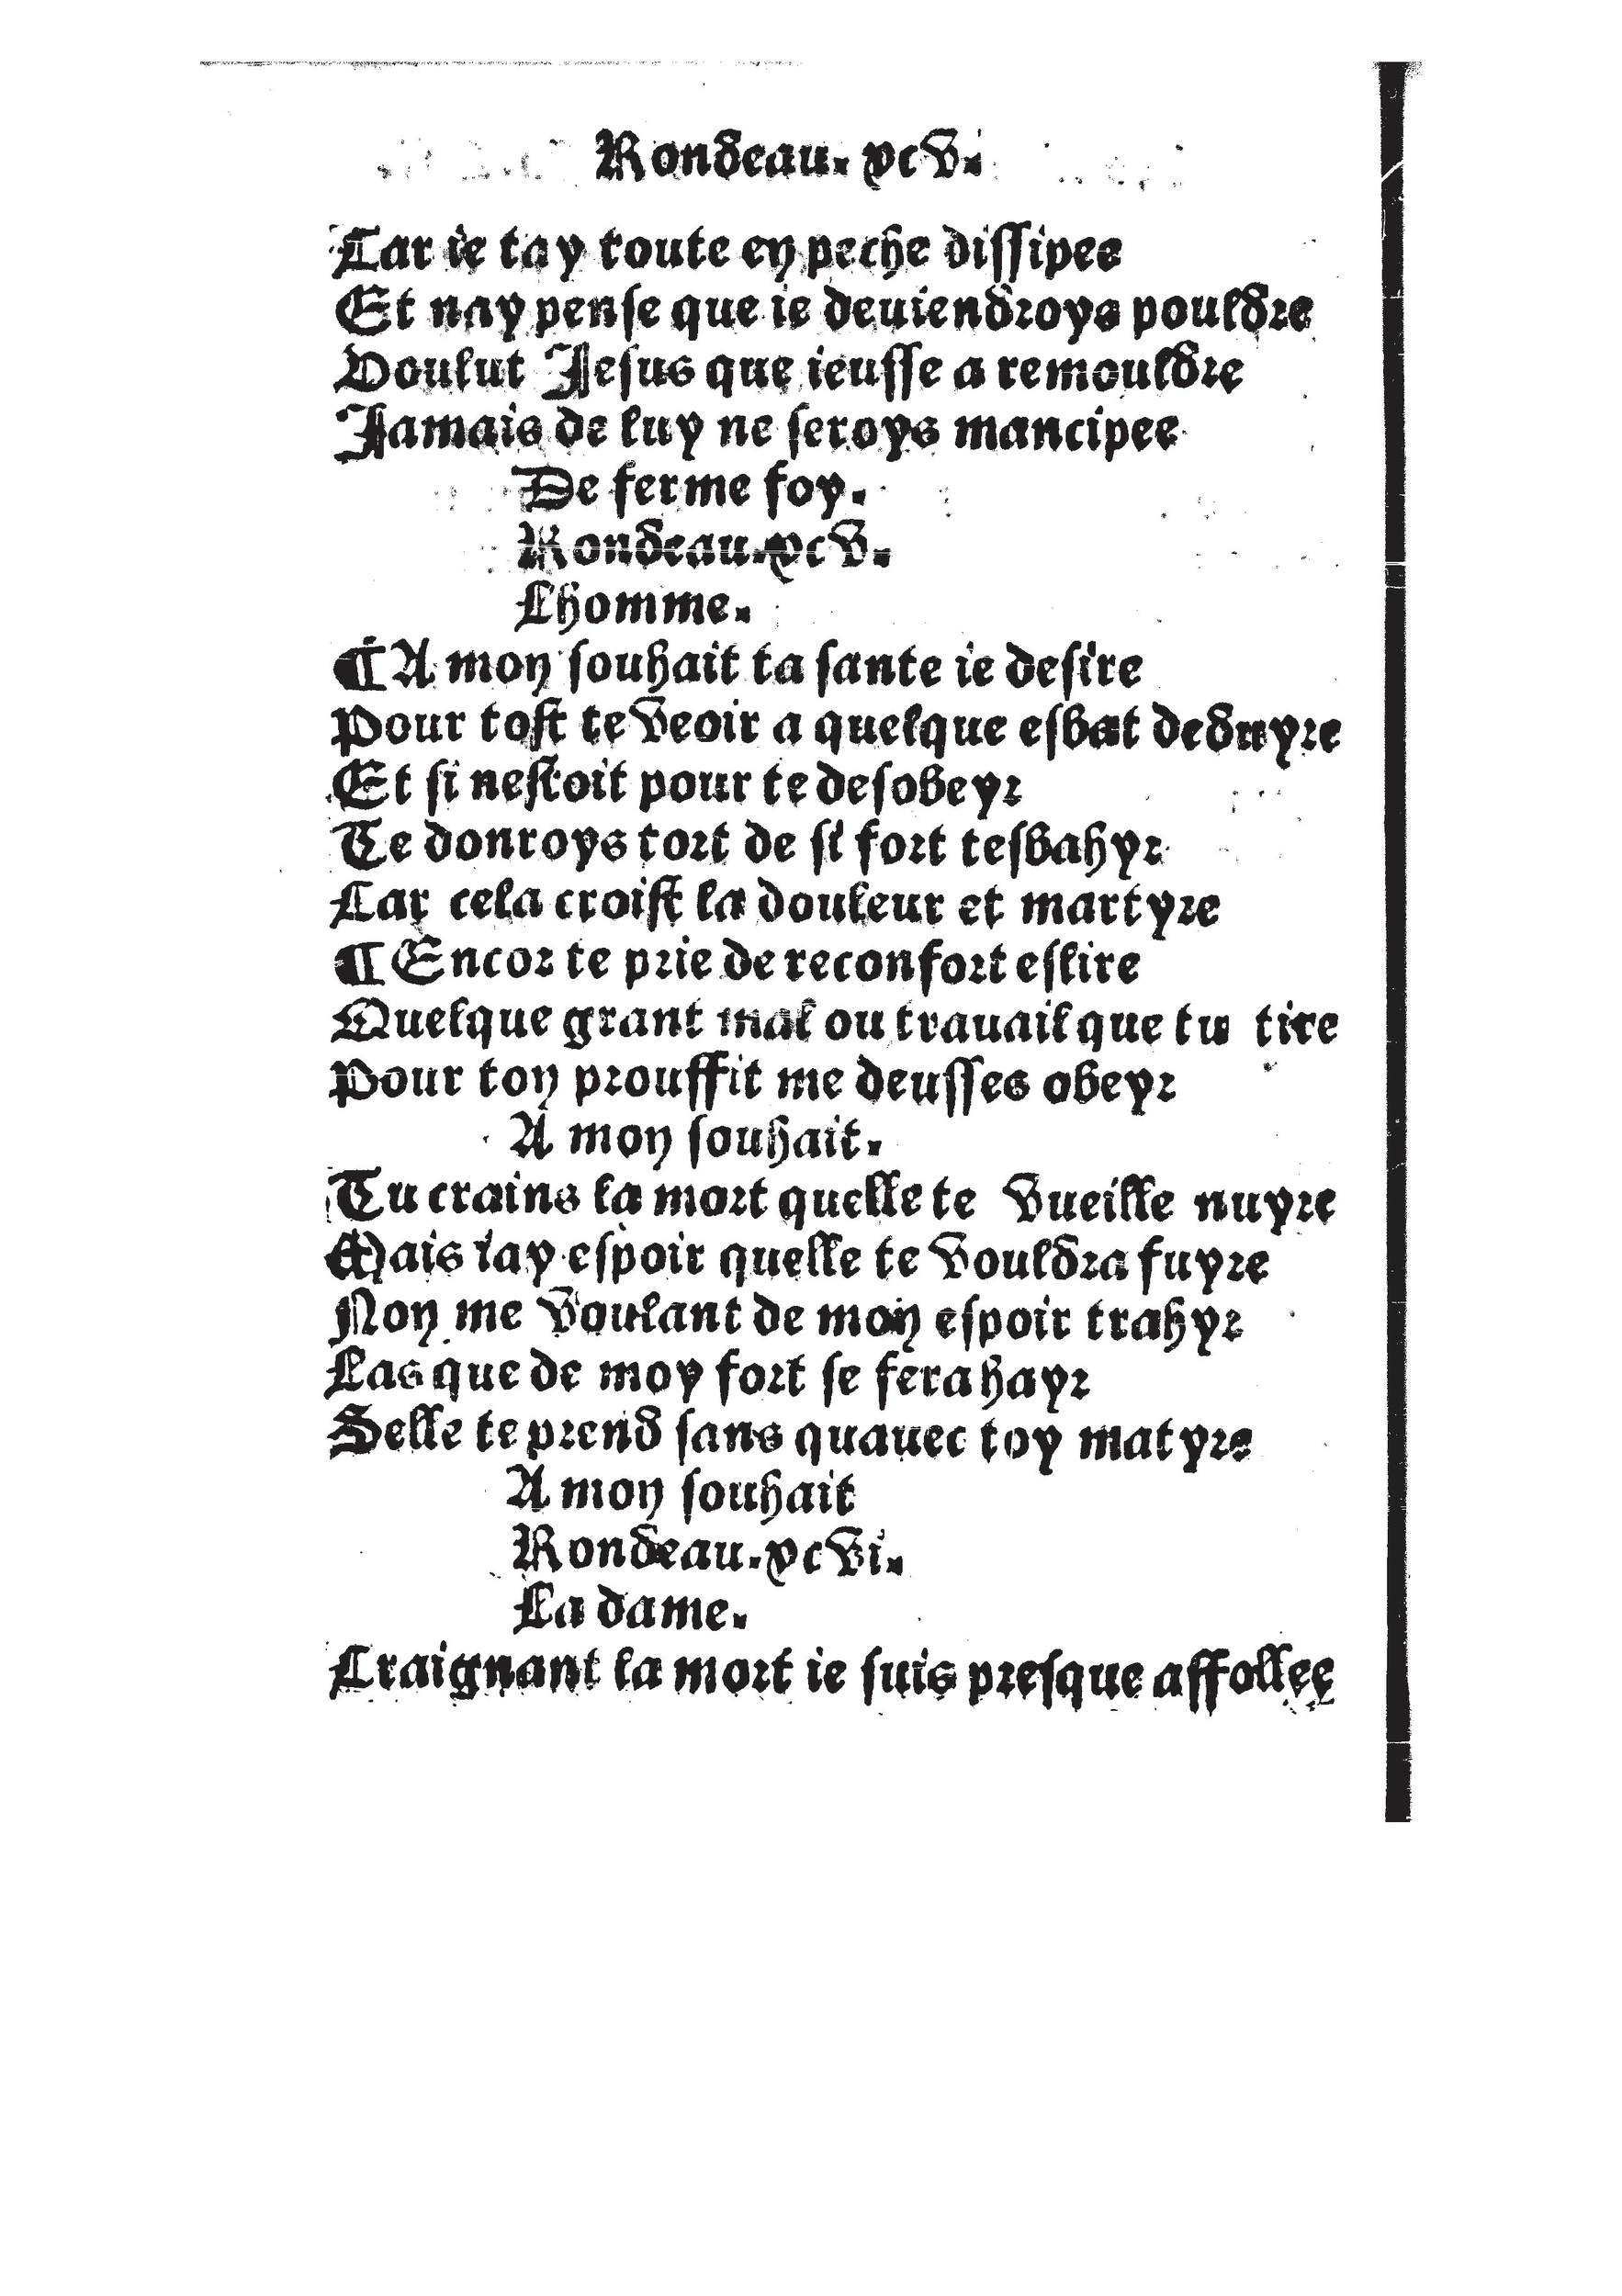 Rondeau. xcv.
Car ie tay toute en peche dissipee
Et nay pense que ie deuiendroys pouldre
Voulut Jesus que ieusse a remouldre
Jamais de luy ne seroys mancipee
De ferme foy.
Rondeau. xcv.
Lhomme.
¶ A mon souhait ta sante ie desire
Pour tost te veoir a quelque esbat deduyre
Et si nestoit pour te desobeyr
Te donroys tort de si fort tesbahyr
Car cela croist la douleur et martyre
¶ Encor te prie de reconfort eslire
Quelque grant mal ou trauail que tu tire
Pour ton prouffit me deusses obeyr
A mon souhait.
Tu crains la mort quelle te vueille nuyre
Mais iay espoir quelle te vouldra fuyre
Non me voulant de mon espoir trahyr
Las que de moy fort se fera hayr
Selle te prend sans quauec toy matyre
A mon souhait
Rondeau. xcvi.
La dame.
Craignant la mort ie suis presque affollee